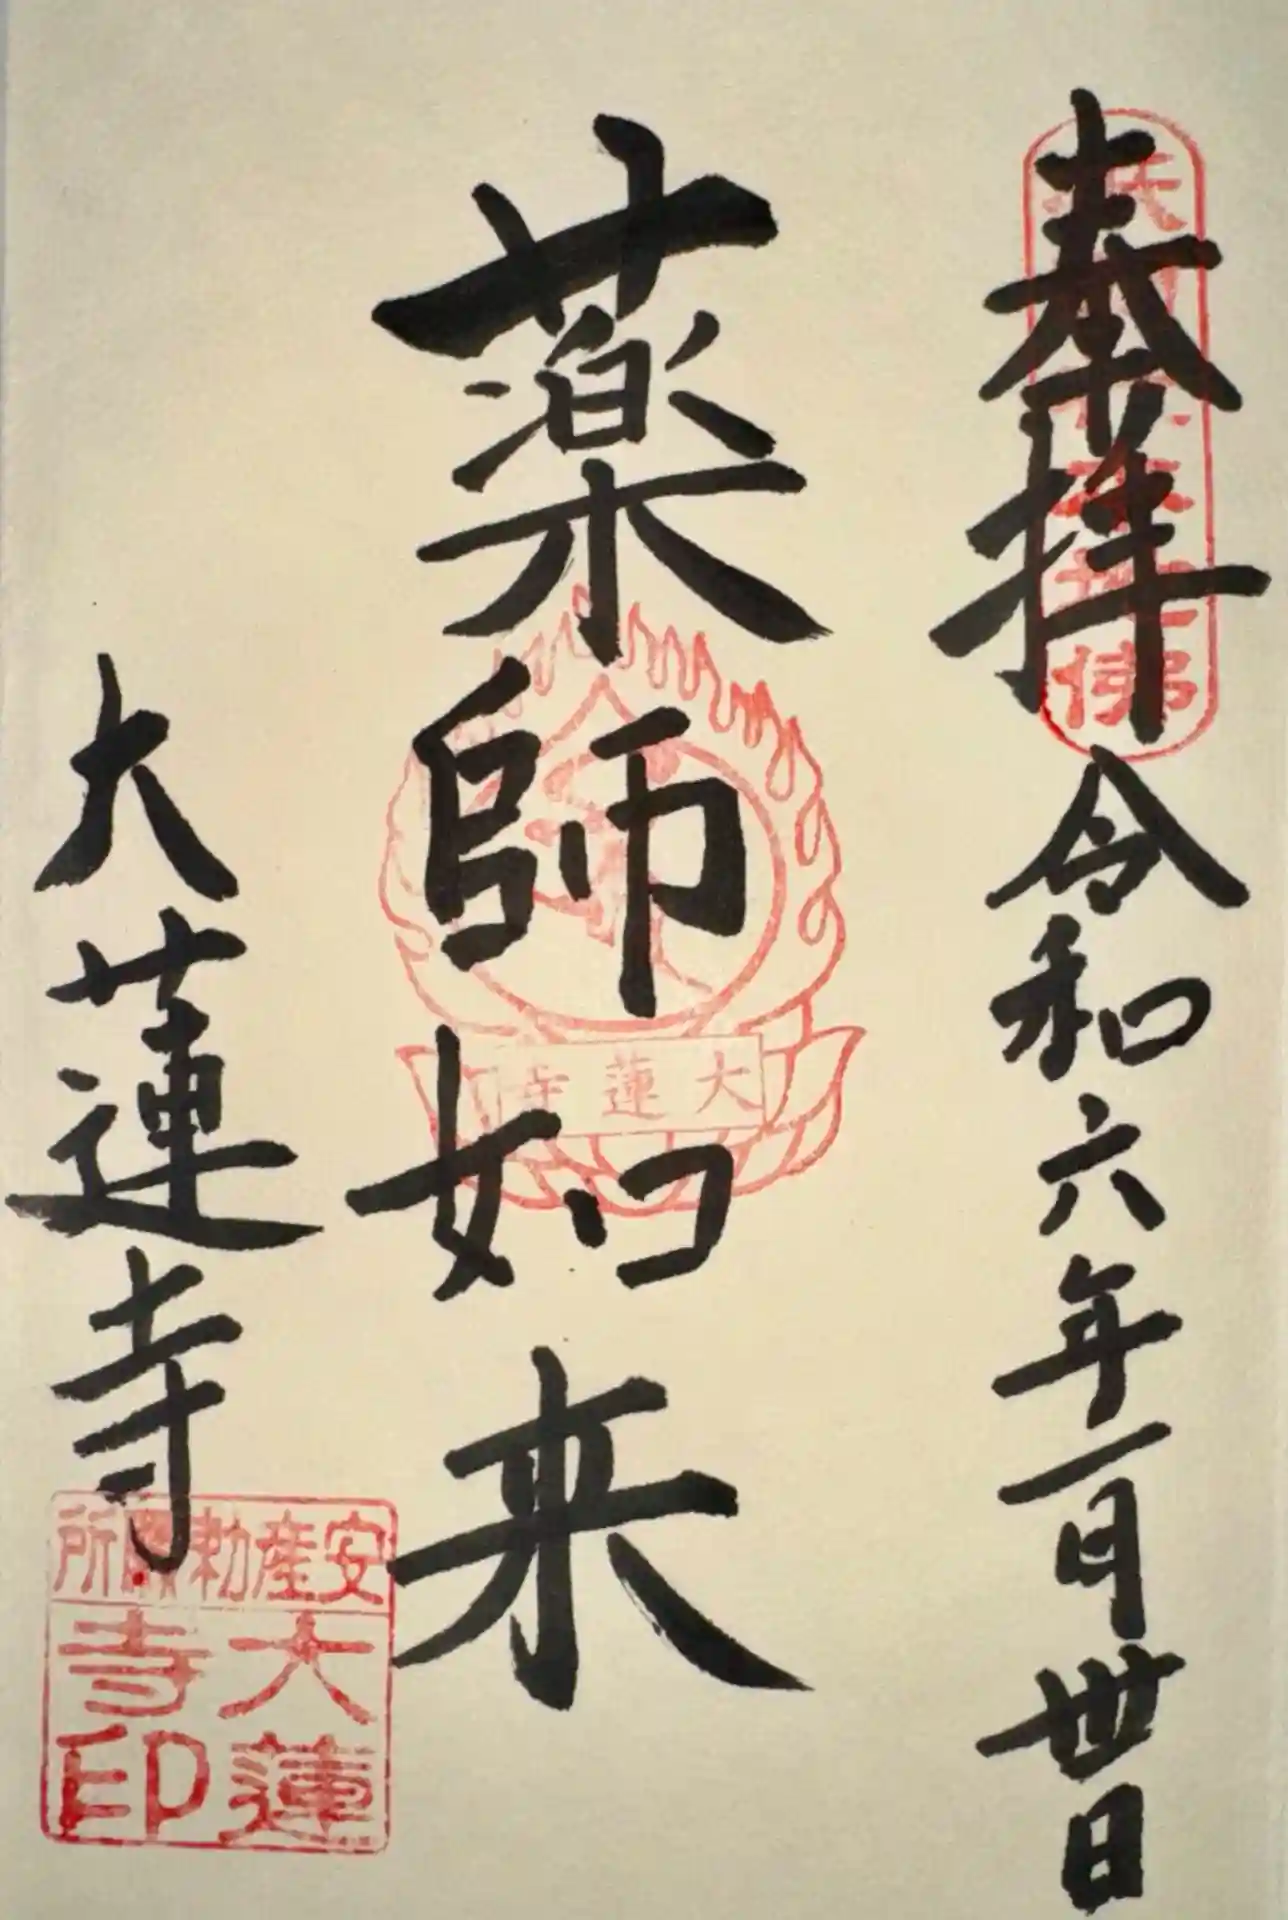 奉拝
令和六年一月卅日
薬師如来
大蓮寺
大蓮寺
安産勅願所
大蓮寺印
佛